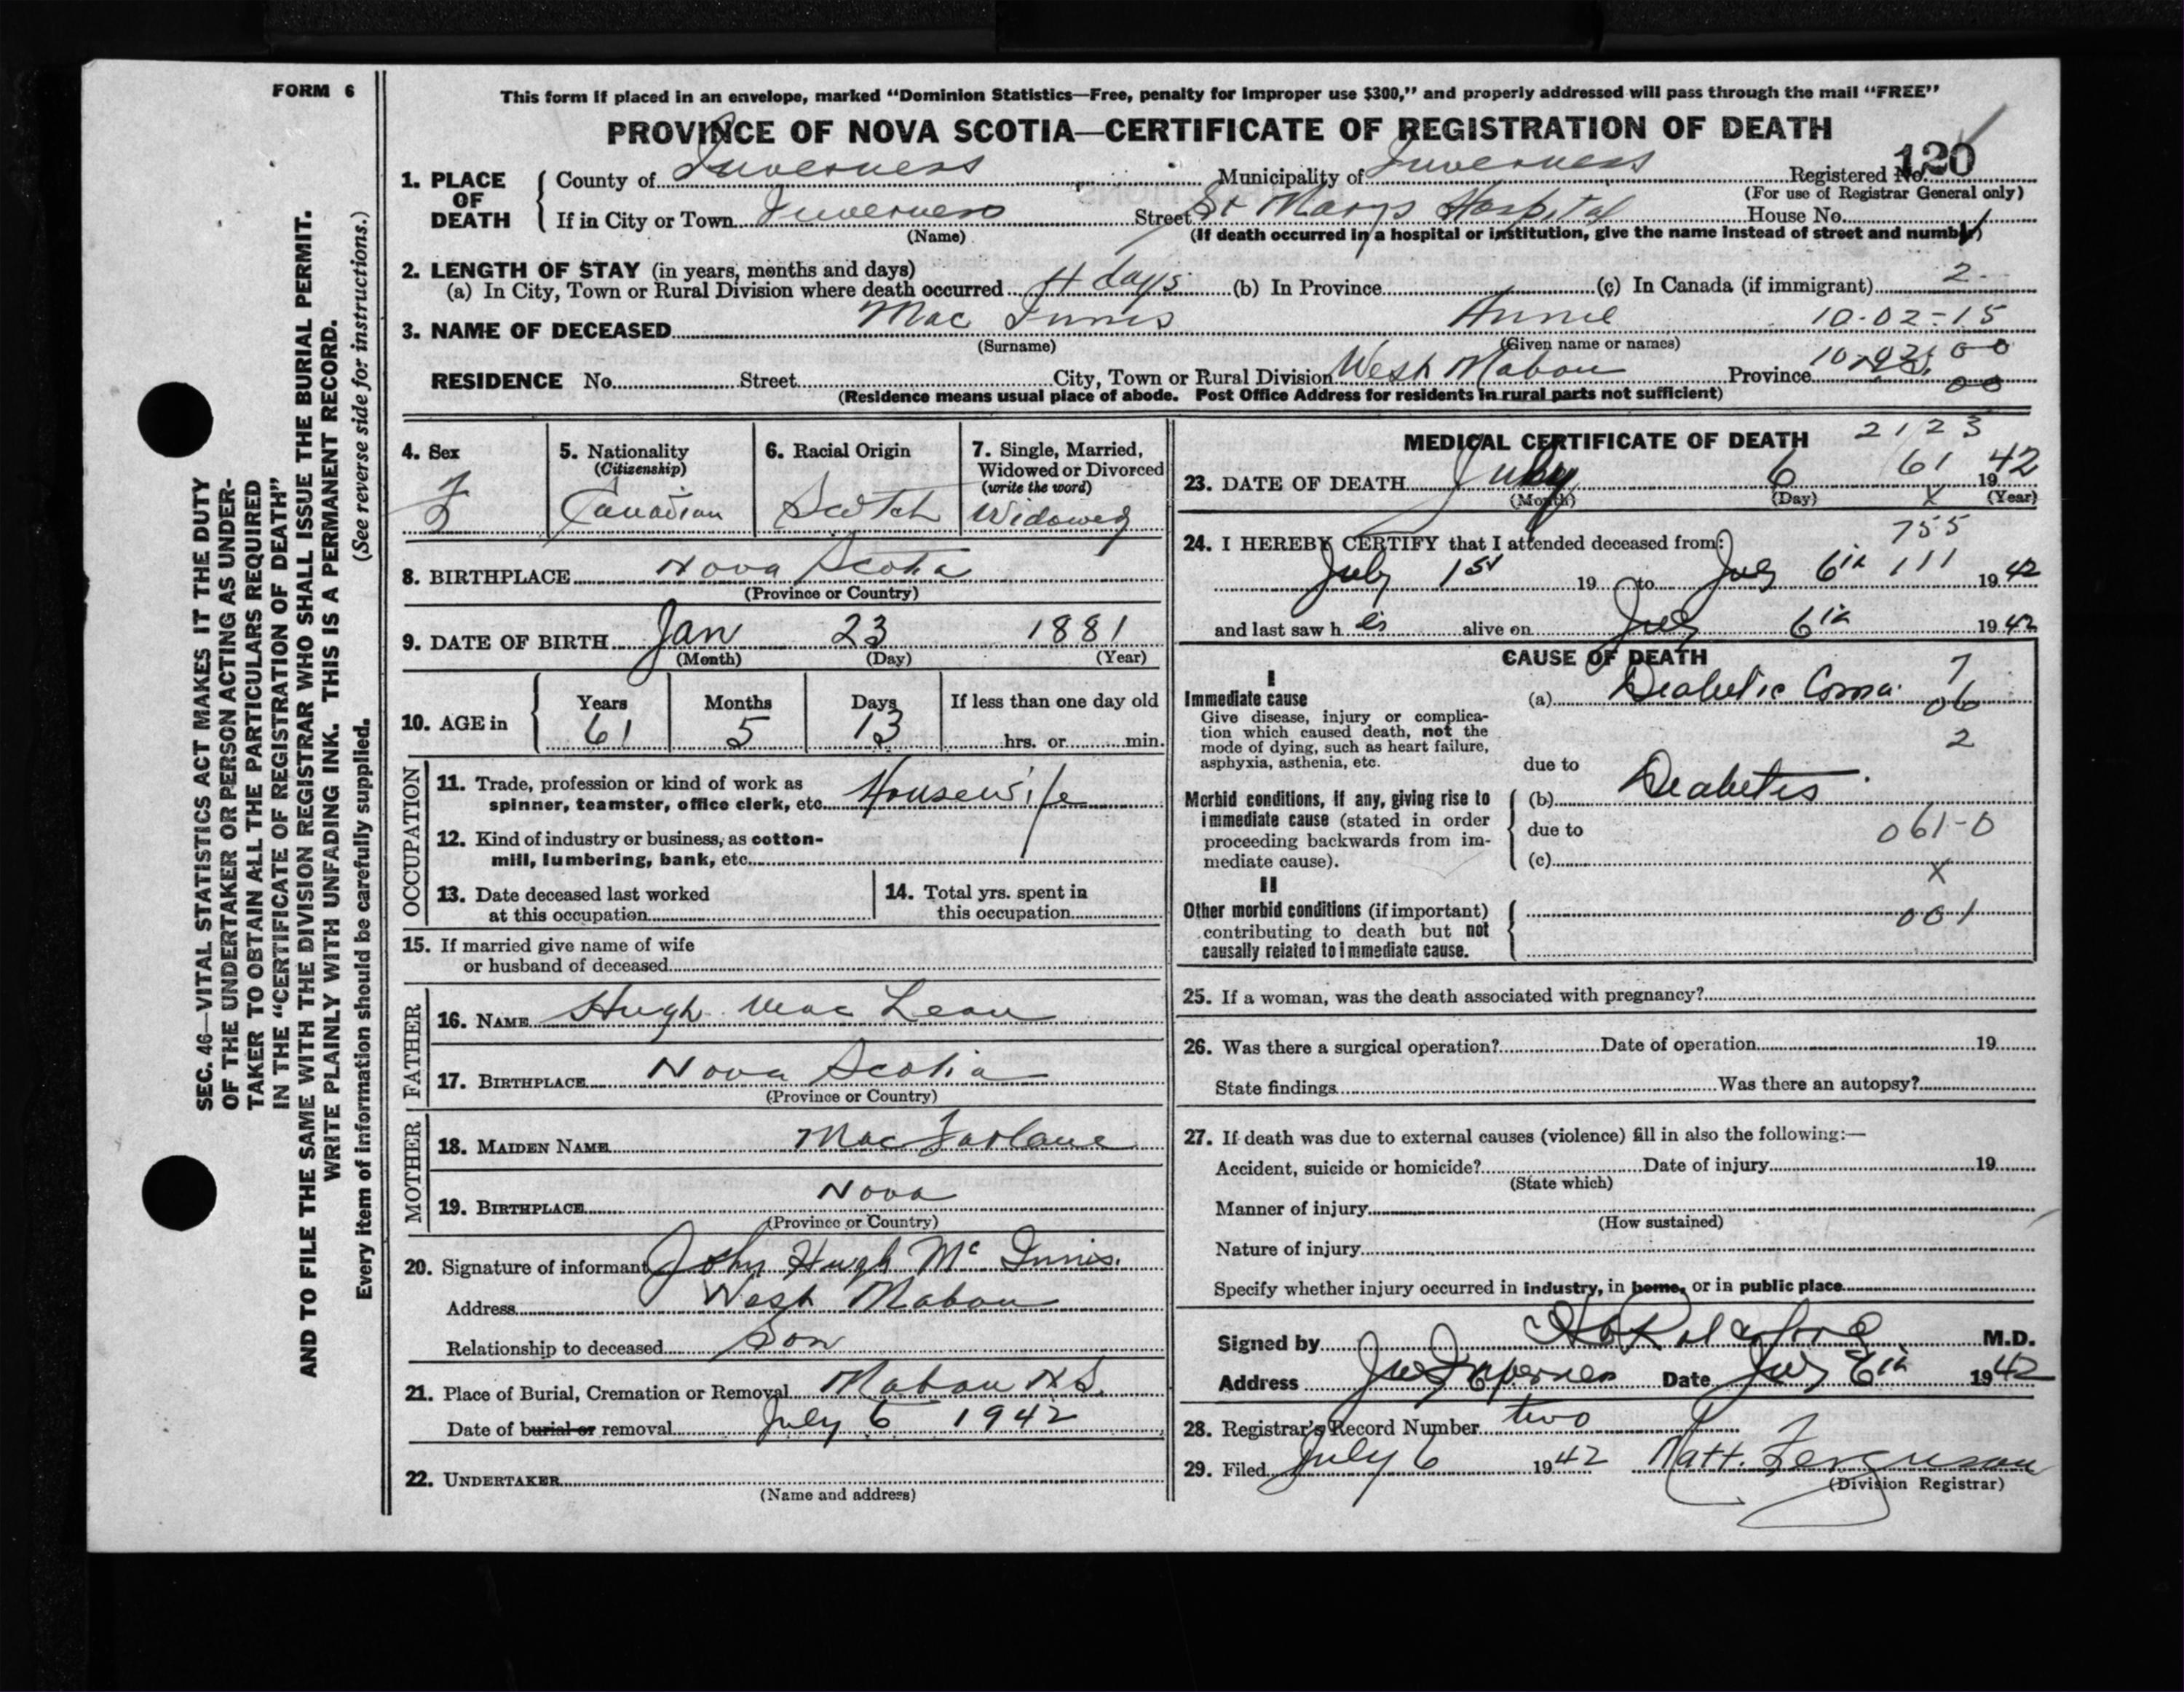 FORM 6
This form if placed in an envelope, marked "Dominion Statistics—Free, penalty for improper use $300," and properly addressed will pass through the mail "FREE"
PROVINCE OF NOVA SCOTIA—CERTIFICATE OF REGISTRATION OF DEATH
1. PLACE OF DEATH { County of Inverness Municipality of Inverness Registered No. 120
(For use of Registrar General only)
If in City or Town Inverness Street St Marys Hospital House No.
(Name) (If death occurred in a hospital or institution, give the name instead of street and number)
2. LENGTH OF STAY (in years, months and days)
(a) In City, Town or Rural Division where death occurred 4 days (b) In Province (c) In Canada (if immigrant) 2
3. NAME OF DECEASED Mac Innis Annie 10-02-15
(Surname) (Given name or names)
RESIDENCE No. Street City, Town or Rural Division West Mabou Province N.S. 00
(Residence means usual place of abode. Post Office Address for residents in rural parts not sufficient)
4. Sex 5. Nationality 6. Racial Origin 7. Single, Married,
(Citizenship) Widowed or Divorced
(write the word)
F Canadian Scotch Widowed
8. BIRTHPLACE Nova Scotia
(Province or Country)
9. DATE OF BIRTH Jan 23 1881
(Month) (Day) (Year)
10. AGE in { Years Months Days If less than one day old
61 5 13 hrs. or min.
OCCUPATION
11. Trade, profession or kind of work as
spinner, teamster, office clerk, etc. Housewife
12. Kind of industry or business, as cotton-
mill, lumbering, bank, etc.
13. Date deceased last worked
at this occupation
14. Total yrs. spent in
this occupation
15. If married give name of wife
or husband of deceased
FATHER
16. NAME Hugh Mac Lean
17. BIRTHPLACE Nova Scotia
(Province or Country)
MOTHER
18. MAIDEN NAME MacFarlane
19. BIRTHPLACE Nova
(Province or Country)
20. Signature of informant John Hugh Mc Innis.
Address West Mabou
Relationship to deceased Son
21. Place of Burial, Cremation or Removal Mabou N.S.
Date of burial or removal July 6 1942
22. UNDERTAKER
(Name and address)
MEDICAL CERTIFICATE OF DEATH 2123
23. DATE OF DEATH July 6 61 1942
(Month) (Day) X (Year)
755
24. I HEREBY CERTIFY that I attended deceased from:
July 1st 19 to July 6th 111 1942
and last saw h er alive on July 6th 1942
CAUSE OF DEATH
I
Immediate cause (a) Diabetic Coma. 7
06
Give disease, injury or complica-
tion which caused death, not the
mode of dying, such as heart failure,
asphyxia, asthenia, etc.
2
due to
Morbid conditions, if any, giving rise to
immediate cause (stated in order
proceeding backwards from im-
mediate cause).
(b) Diabetis.
due to 061-0
(c)
X
II
Other morbid conditions (if important)
contributing to death but not
causally related to immediate cause.
001
25. If a woman, was the death associated with pregnancy?
26. Was there a surgical operation? Date of operation 19
State findings Was there an autopsy?
27. If death was due to external causes (violence) fill in also the following:—
Accident, suicide or homicide? Date of injury 19
(State which)
Manner of injury
(How sustained)
Nature of injury
Specify whether injury occurred in industry, in home, or in public place
Signed by M.D.
Address Inverness Date July 6th 1942
28. Registrar's Record Number two
29. Filed July 6 1942 Matt. Ferguson
(Division Registrar)
SEC. 46—VITAL STATISTICS ACT MAKES IT THE DUTY
OF THE UNDERTAKER OR PERSON ACTING AS UNDER-
TAKER TO OBTAIN ALL THE PARTICULARS REQUIRED
IN THE "CERTIFICATE OF REGISTRATION OF DEATH"
AND TO FILE THE SAME WITH THE DIVISION REGISTRAR WHO SHALL ISSUE THE BURIAL PERMIT.
WRITE PLAINLY WITH UNFADING INK. THIS IS A PERMANENT RECORD.
Every item of information should be carefully supplied. (See reverse side for instructions.)